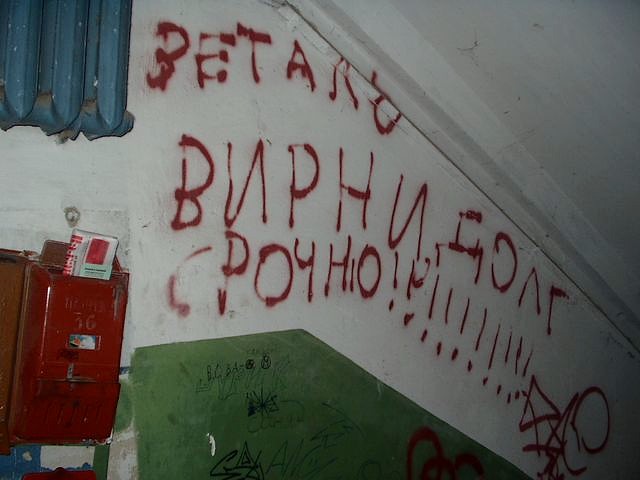 ВЕТАЛЬ
ВИРНИ ДОЛГ
СРОЧНО!!!!!!!!!!!
36